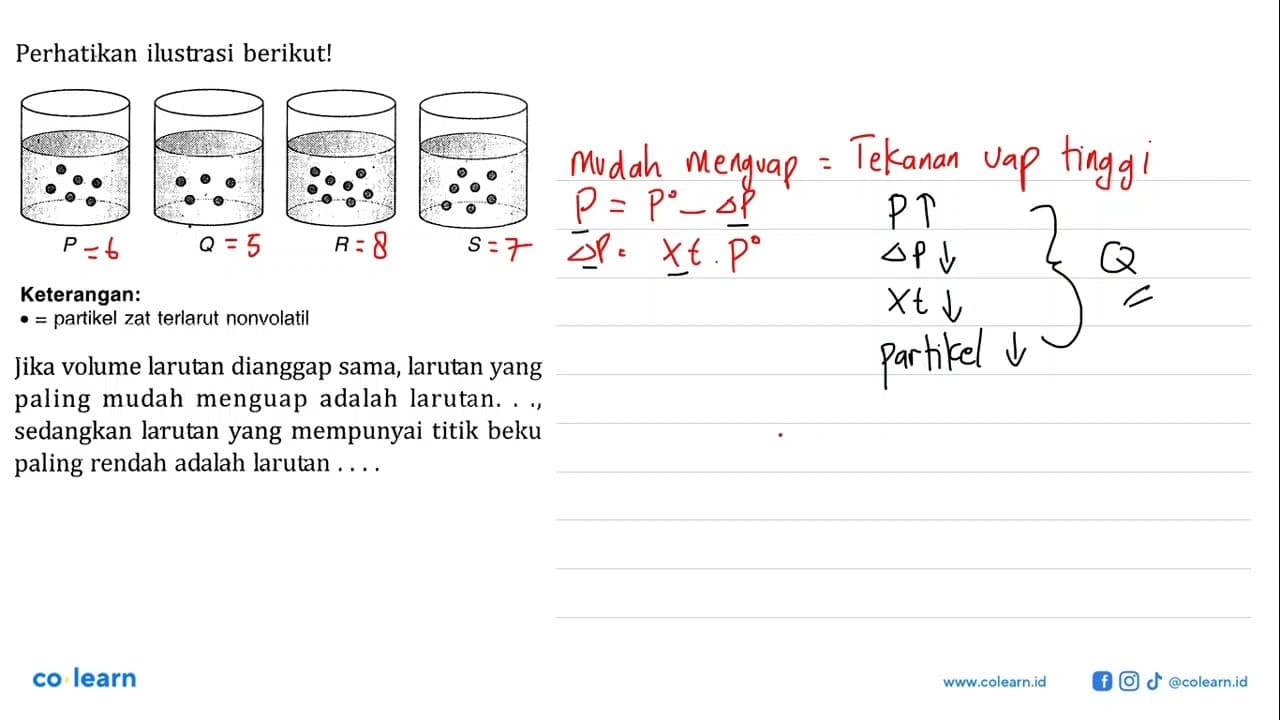 Perhatikan ilustrasi berikut!
P = 6
Q = 5
R = 8
S = 7
Keterangan:
• = partikel zat terlarut nonvolatil
Jika volume larutan dianggap sama, larutan yang
paling mudah menguap adalah larutan. . .,
sedangkan larutan yang mempunyai titik beku
paling rendah adalah larutan . . . .
Mudah menguap = Tekanan uap tinggi
P = P° - ΔP
ΔP = Xt . P°
P↑
ΔP ↓
Xt ↓
partikel ↓
Q
co learn
www.colearn.id
@colearn.id